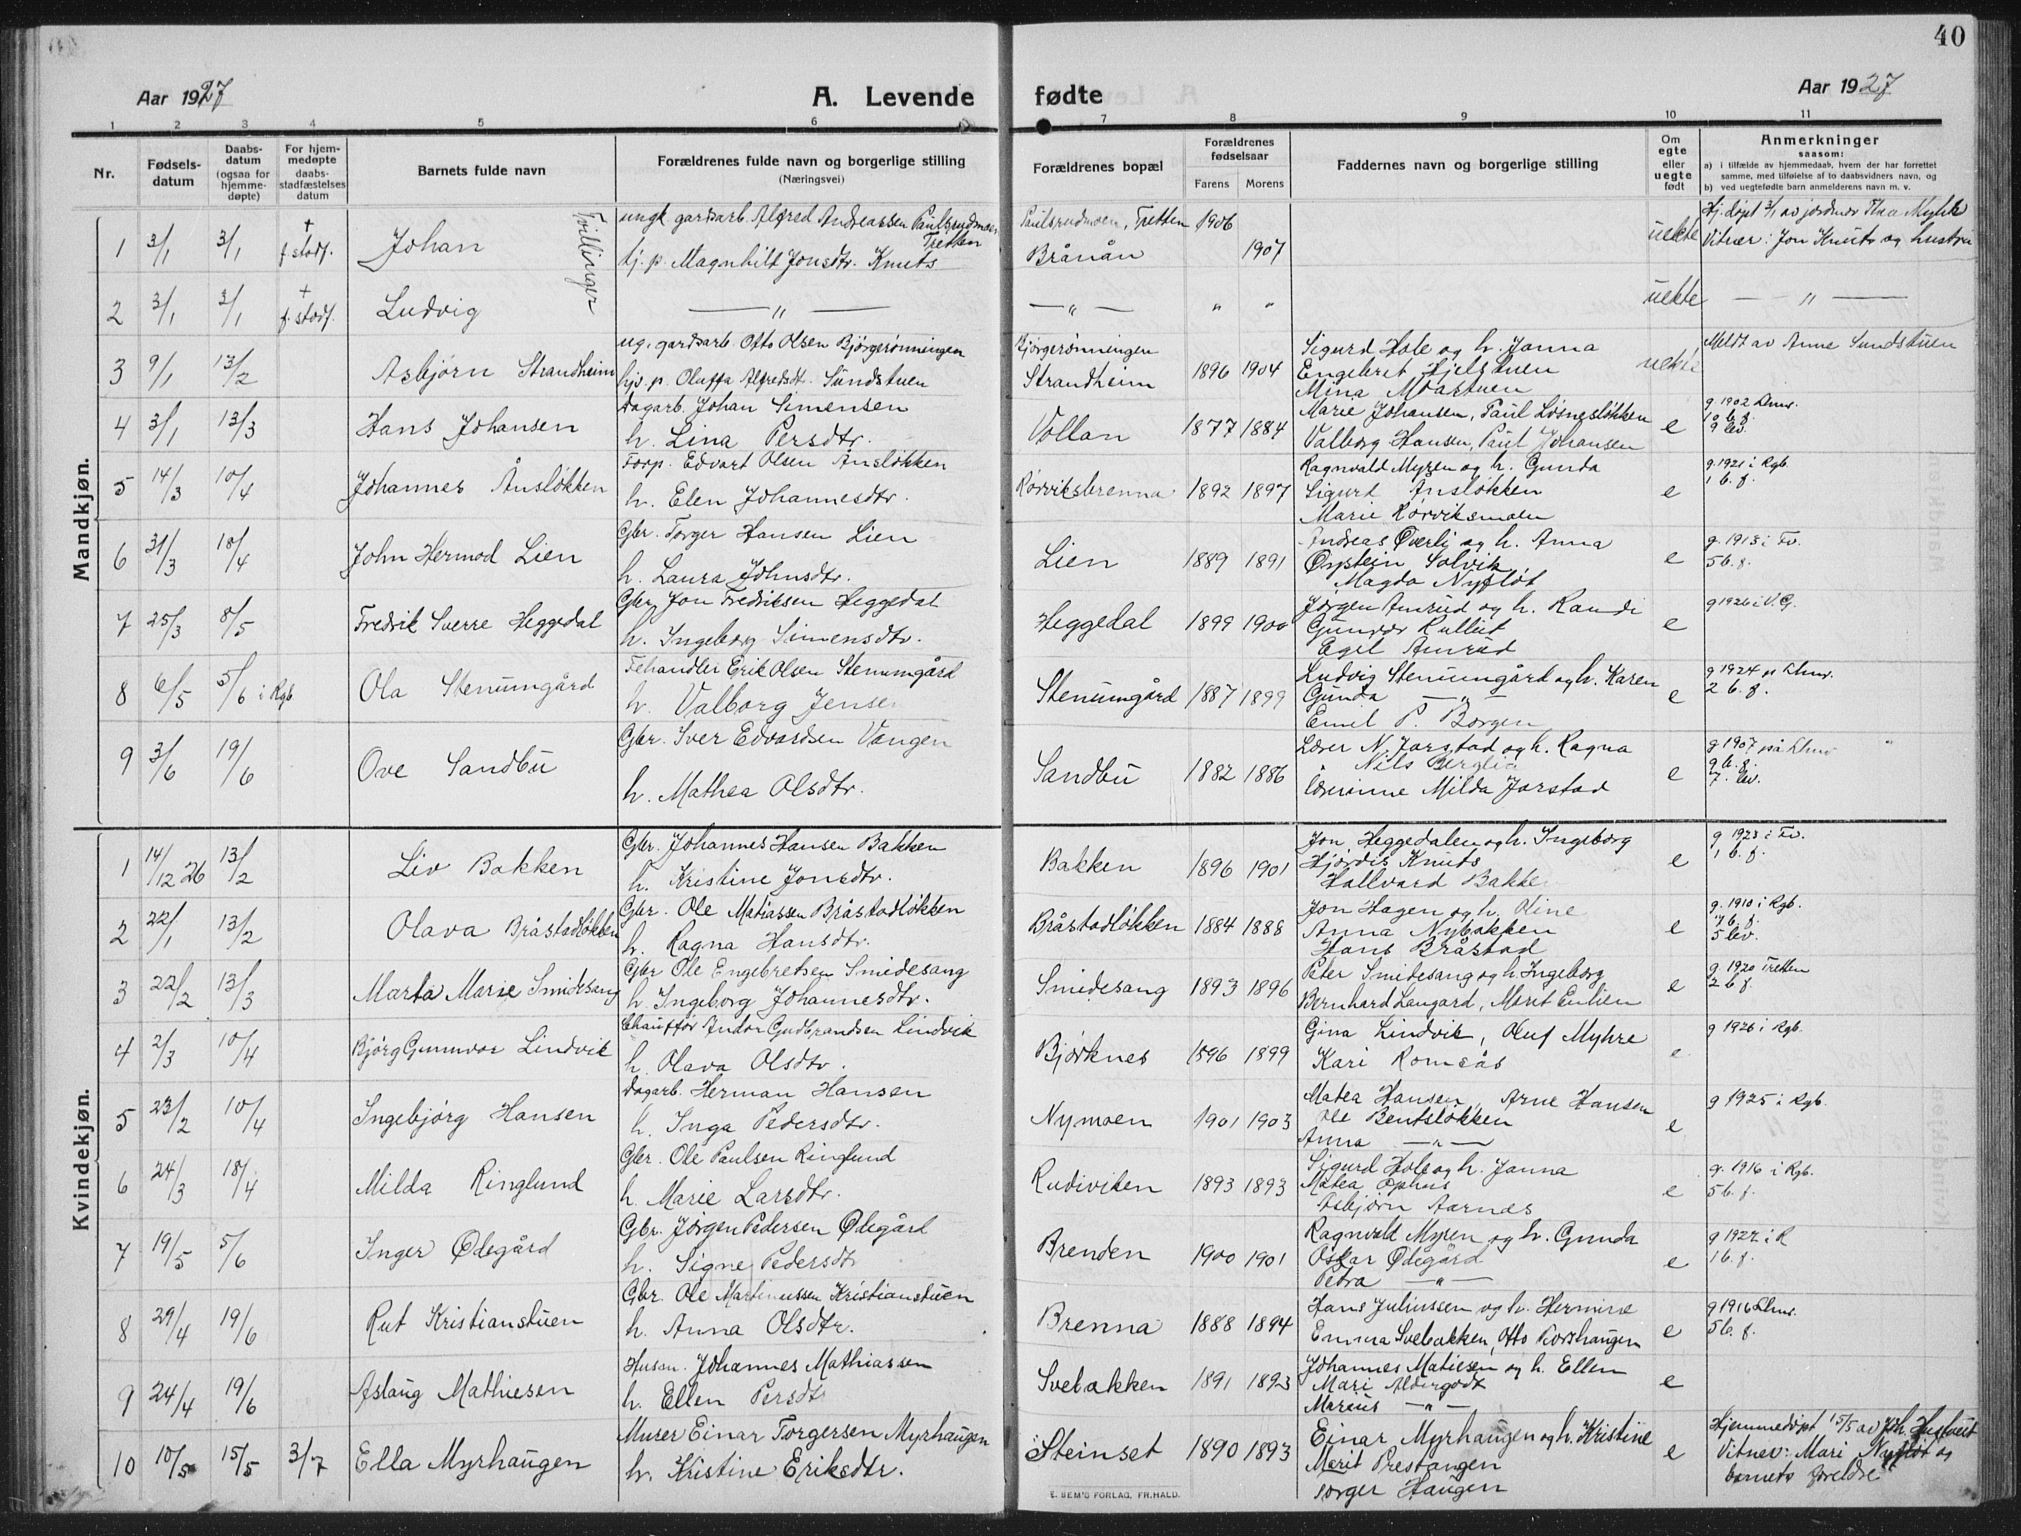 40
Aar 1927
A. Levende fødte
Aar 1927
1 2 3 4 5 6 7 8 9 10 11
Nr.
Fødsels-
datum
Daabs-
datum
(ogsaa for
hjemme-
døpte)
For hjem-
medøpte
daabs-
stadfæstelses
datum
Barnets fulde navn
Forældrenes fulde navn og borgerlige stilling
(Næringsvei)
Forældrenes bopæl
Forældrenes
fødselsaar
Farens Morens
Faddernes navn og borgerlige stilling
Om
egte
eller
uegte
født
Anmerkninger
saasom:
a) i tilfælde av hjemmedaab, hvem der har forrettet
samme, med tilføielse af to daabsvidners navn, og
b) ved uegtefødte barn anmelderens navn m. v.
Mandkjøn.
1 3/1 3/1 + f. stadf. Johan Tvillinger
ungk. gardsarb. Alfred Andreassen Paulsrudmoen Tretten
tj. p. Magnhilt Jonsdtr. Knuts
Paulsrudmoen, Tretten 1906
Brånån 1907
uekte
Hj. døpt 3/1 av jordmor Thea Myhre
Vitner: Jon Knuts og hustru
2 3/1 3/1 + f. stadf. Ludvig — " — — " — " " uekte — " —
3 9/1 13/2 Asbjørn Strandheim
ug. gardsarb. Otto Olsen Bjørgerønningen
hjv. p. Oluffa Alfredsdt. Sundstuen
Bjørgerønningen
Strandheim 1896 1904
Sigurd Hole og h. Janna
Engebret Hjelstuen
Mina Moastuen
uekte
Meldt av Anne Sundstuen
4 3/1 13/3 Hans Johansen
Dagarb. Johan Simensen
h. Lina Persdtr.
Vollan 1877 1884
Marie Johansen, Paul Losnesløkken
Valborg Hansen, Paul Johansen
e
g. 1902 Lhmr.
10 b. f.
9 lev.
5 14/3 10/4 Johannes Ånsløkken
Forp. Edvart Olsen Ånsløkken
h. Elen Johannesdtr.
Rørviksbrenna 1892 1897
Ragnvald Myren og h. Gunda
Sigurd Ansløkken
Marie Rørviksmoen
e
g. 1921 i Rgb.
1 b. f.
6 31/3 18/4 John Hermod Lien
Gbr. Torger Hansen Lien
h. Laura Johnsdtr.
Lien 1889 1891
Andreas Øverlj og h. Anna
Øystein Solvik
Magda Nyfløt
e
g. 1913 i Fv.
5 b. f.
7 25/3 8/5 Fredrik Sverre Heggedal
Gbr. Jon Fredriksen Heggedal
h. Ingeborg Simensdtr.
Heggedal 1899 1900
Jørgen Amrud og h. Randi
Gunvor Rullut
Egil Amrud
e
g 1926 i V.G.
8 6/5 5/6 i Rgb Ola Stenumgård
Fehandler Erik Olsen Stenumgård
h. Valborg Jense
Stenumgård 1887 1899
Ludvig Stenumgård og h. Karen
Gunda — " —
Emil P. Borgen
e
g 1924 på Lhmr.
2 b. f.
9 3/6 19/6 Ove Sandbu
Gbr. Iver Edvardsen Vangen
h. Mathea Olsdtr.
Sandbu 1882 1886
Lærer N. Jorstad og h. Ragna
Nils Berglia
Lærerinne Milda Jorstad
e
g 1907 på Lhmr
9 b. f.
7. lev.
Kvindekjøn.
1 14/12 26 13/2 Liv Bakken
Gbr. Johannes Hansen Bakken
h. Kristine Jonsdtr.
Bakken 1896 1901
Jon Heggedalen og h. Ingeborg
Hjørdis Knuts
Hallvard Bakke
e
g 1923 i Fv.
1 b. f.
2 22/1 13/2 Olava Bråstadløkken
Gbr. Ole Matiassen Bråstadløkken
h. Ragna Hansdtr.
Bråstadløkken 1884 1888
Jon Hagen og h. Oline
Anna Nybakken
Hans Bråstad
e
g. 1910 i Rgb.
7 b. f.
5 lev.
3 22/2 13/3 Marta Marie Smidesang
Gbr Ole Engebretsen Smidesang
h. Ingeborg Johannesdtr.
Smidesang 1893 1896
Peter Smidesang og h. Ingeborg
Bernhard Langard, Marit Enlien
e
g 1920 Tretten
2 b f.
4 2/3 10/4 Bjørg Gunnvor Lindvik
Chauffør Andor Gudbrandsen Lindvik
h. Olava Olsdtr.
Bjørknes 1896 1899
Gina Lindvik, Oluf Myhre
Kari Romsås
e
g 1926 i Rgb.
5 23/2 10/4 Ingebjørg Hansen
Dagarb. Herman Hansen
h. Inga Pedersdtr.
Nymoen 1901 1903
Matea Hansen, Arne Hansen
Ole Bentsløkken
Anna — " —
e
g 1925 i Rgb.
6 24/3 18/4 Milda Ringlund
Gbr. Ole Paulsen Ringlund
h Marie Larsdtr.
Rudiviken 1893 1893
Sigurd Hole og h. Janna
Matea Ophus
Asbjørn Aarnes
e
g. 1916 i Rgb.
5 b. f.
7 19/5 5/6 Inger Ødegård
Gbr. Jørgen Pedersen Ødegård
h. Signe Pedersdtr
Brenden 1900 1901
Ragnvald Myren og h. Gunda
Oskar Ødegård
Petra — " —
e
g 1922 i R
1 b. f.
8 29/4 19/6 Rut Kristianstuen
Gbr. Ole Martinussen Kristianstuen
h. Anna Olsdtr.
Brenna 1888 1894
Hans Juliussen og h. Hermine
Emma Svebakken, Otto Korshaugen
e
g 1916 Lhmr.
5 b. f.
9 24/4 19/6 Aslaug Mathiesen
Husm. Johannes Mathiassen
h. Ellen Persdtr
Svebakken 1891 1893
Johannes Matiesen og h. Ellen
Mari Aldergodt
Marius — " —
e
10 10/5 15/5 3/7 Ella Myrhaugen
Murer Einar Torgersen Myrhaugen
h. Kristine Eriksdtr.
Steinset 1890 1893
Einar Myrhaugen og h. Kristine
Marit Prestangen
Torger Haugen
e
Hjemmedøpt 15/5 av Joh. Hustveit
Vitner: Mari Nyfløt og
barnets foreldre
E. SEM'S FORLAG, FR.HALD.